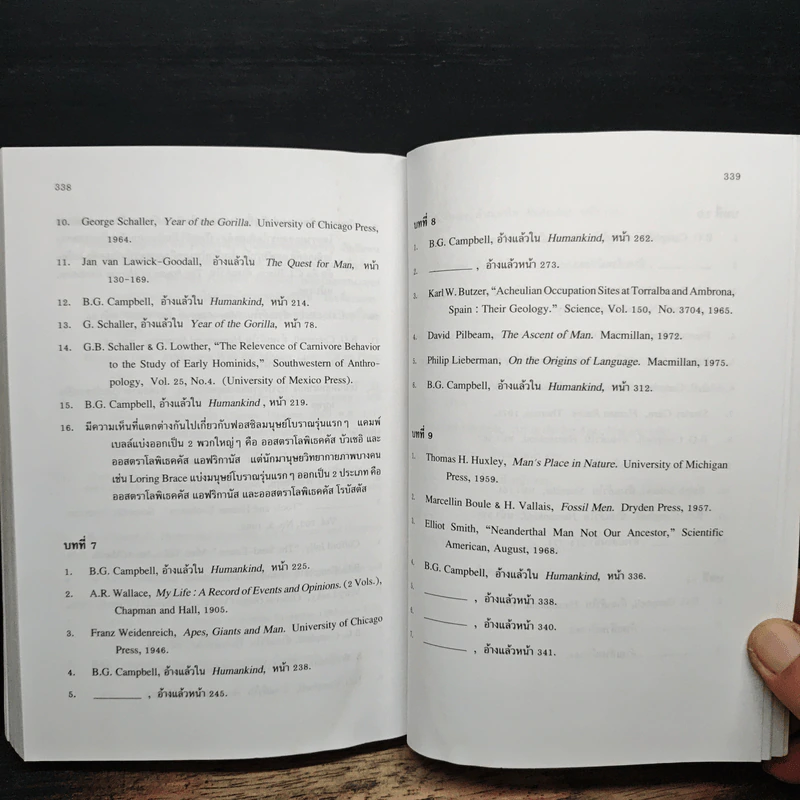 338
10. George Schaller, Year of the Gorilla. University of Chicago Press,
1964.
11. Jan van Lawick-Goodall, อ้างแล้วใน The Quest for Man, หน้า
130-169.
12. B.G. Campbell, อ้างแล้วใน Humankind, หน้า 214.
13. G. Schaller, อ้างแล้วใน Year of the Gorilla, หน้า 78.
14. G.B. Schaller & G. Lowther, “The Relevence of Carnivore Behavior
to the Study of Early Hominids,” Southwestern of Anthro-
pology, Vol. 25, No.4. (University of Mexico Press).
15. B.G. Campbell, อ้างแล้วใน Humankind, หน้า 219.
16. มีความเห็นที่แตกต่างกันไปเกี่ยวกับฟอสซิลมนุษย์โบราณรุ่นแรกๆ แคมพ์
เบลล์แบ่งออกเป็น 2 พวกใหญ่ๆ คือ ออสตราโลพิเธคคัส บัวเซอิ และ
ออสตราโลพิเธคคัส แอฟริกานัส แต่นักมานุษยวิทยากายภาพบางคน
เช่น Loring Brace แบ่งมนุษย์โบราณรุ่นแรกๆ ออกเป็น 2 ประเภท คือ
ออสตราโลพิเธคคัส แอฟริกานัส และออสตราโลพิเธคคัส โรบัสตัส
บทที่ 7
1. B.G. Campbell, อ้างแล้วใน Humankind, หน้า 225.
2. A.R. Wallace, My Life : A Record of Events and Opinions. (2 Vols.),
Chapman and Hall, 1905.
3. Franz Weidenreich, Apes, Giants and Man. University of Chicago
Press, 1946.
4. B.G. Campbell, อ้างแล้วใน Humankind, หน้า 238.
5. ________ , อ้างแล้วหน้า 245.
339
บทที่ 8
1. B.G. Campbell, อ้างแล้วใน Humankind, หน้า 262.
2. ________ , อ้างแล้วหน้า 273.
3. Karl W. Butzer, “Acheulian Occupation Sites at Torralba and Ambrona,
Spain : Their Geology.” Science, Vol. 150, No. 3704, 1965.
4. David Pilbeam, The Ascent of Man. Macmillan, 1972.
5. Philip Lieberman, On the Origins of Language. Macmillan, 1975.
6. B.G. Campbell, อ้างแล้วใน Humankind, หน้า 312.
บทที่ 9
1. Thomas H. Huxley, Man's Place in Nature. University of Michigan
Press, 1959.
2. Marcellin Boule & H. Vallais, Fossil Men. Dryden Press, 1957.
3. Elliot Smith, “Neanderthal Man Not Our Ancestor,” Scientific
American, August, 1968.
4. B.G. Campbell, อ้างแล้วใน Humankind, หน้า 336.
5. ________ , อ้างแล้วหน้า 338.
6. ________ , อ้างแล้วหน้า 340.
7. ________ , อ้างแล้วหน้า 341.